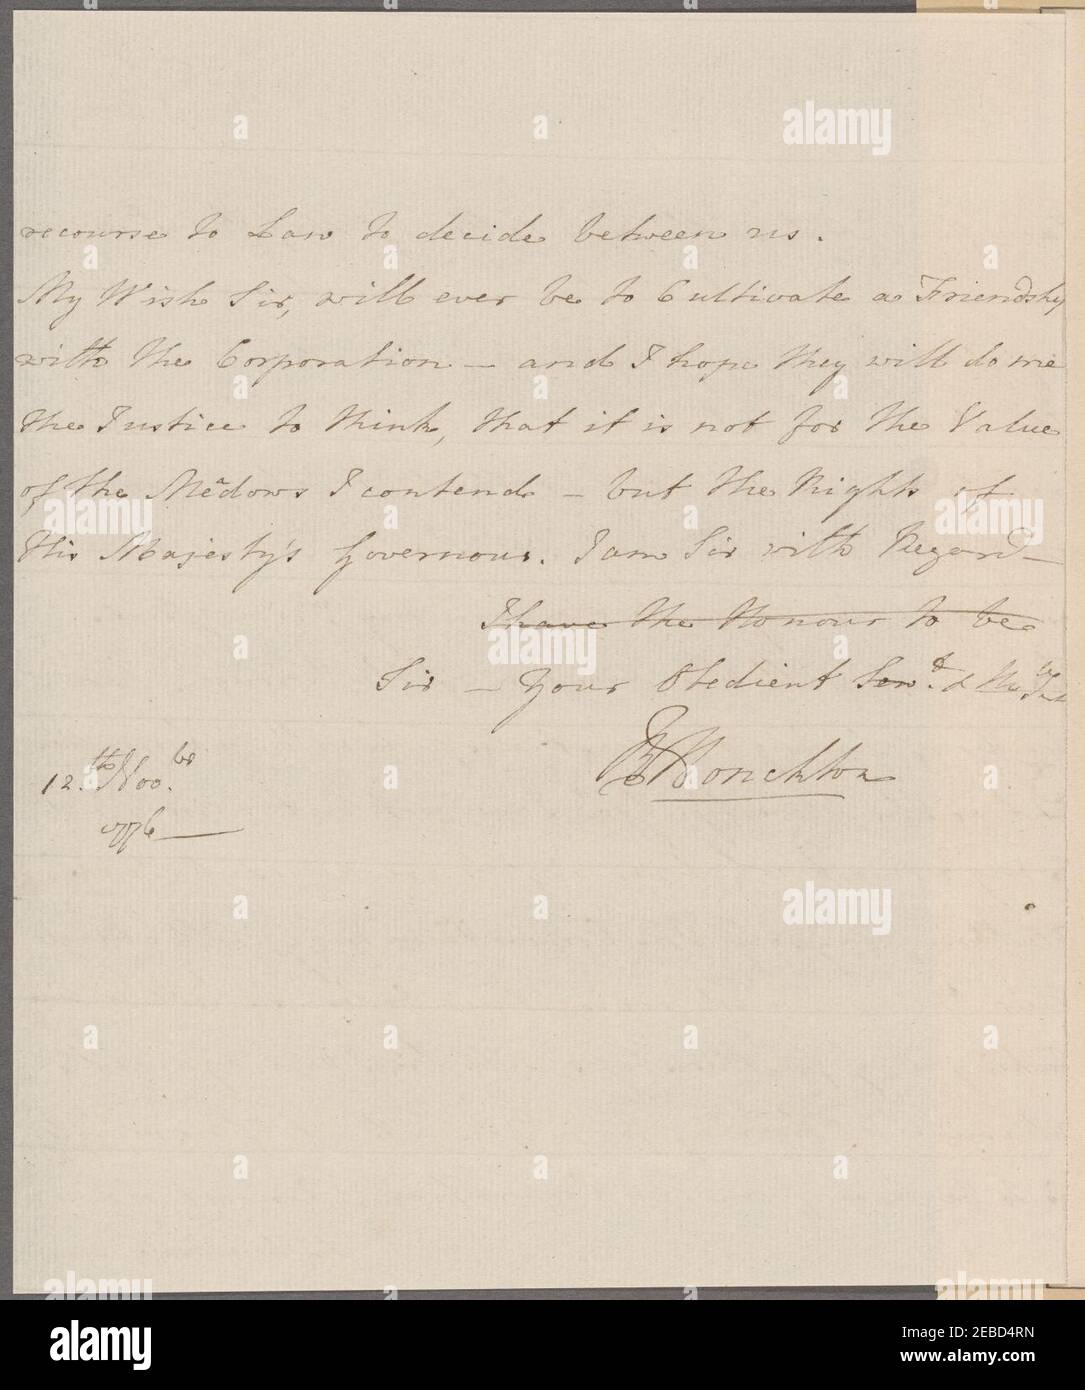 recourse to Law to decide between us.
My Wish Sir, will ever be to Cultivate a Friendship
with the Corporation — and I hope they will do me
the Justice to think, that it is not for the Value
of the Meadows I contend — but the Rights of
His Majesty's Governour. I am Sir with Regard —
I have the Honour to be
Sir — Your Obedient Servt. &
R Monckton
12.th Nov.br
1776
alamy
alamy
alamy
alamy
alamy
alamy
alamy
Image ID: 2EBD4RN
www.alamy.com